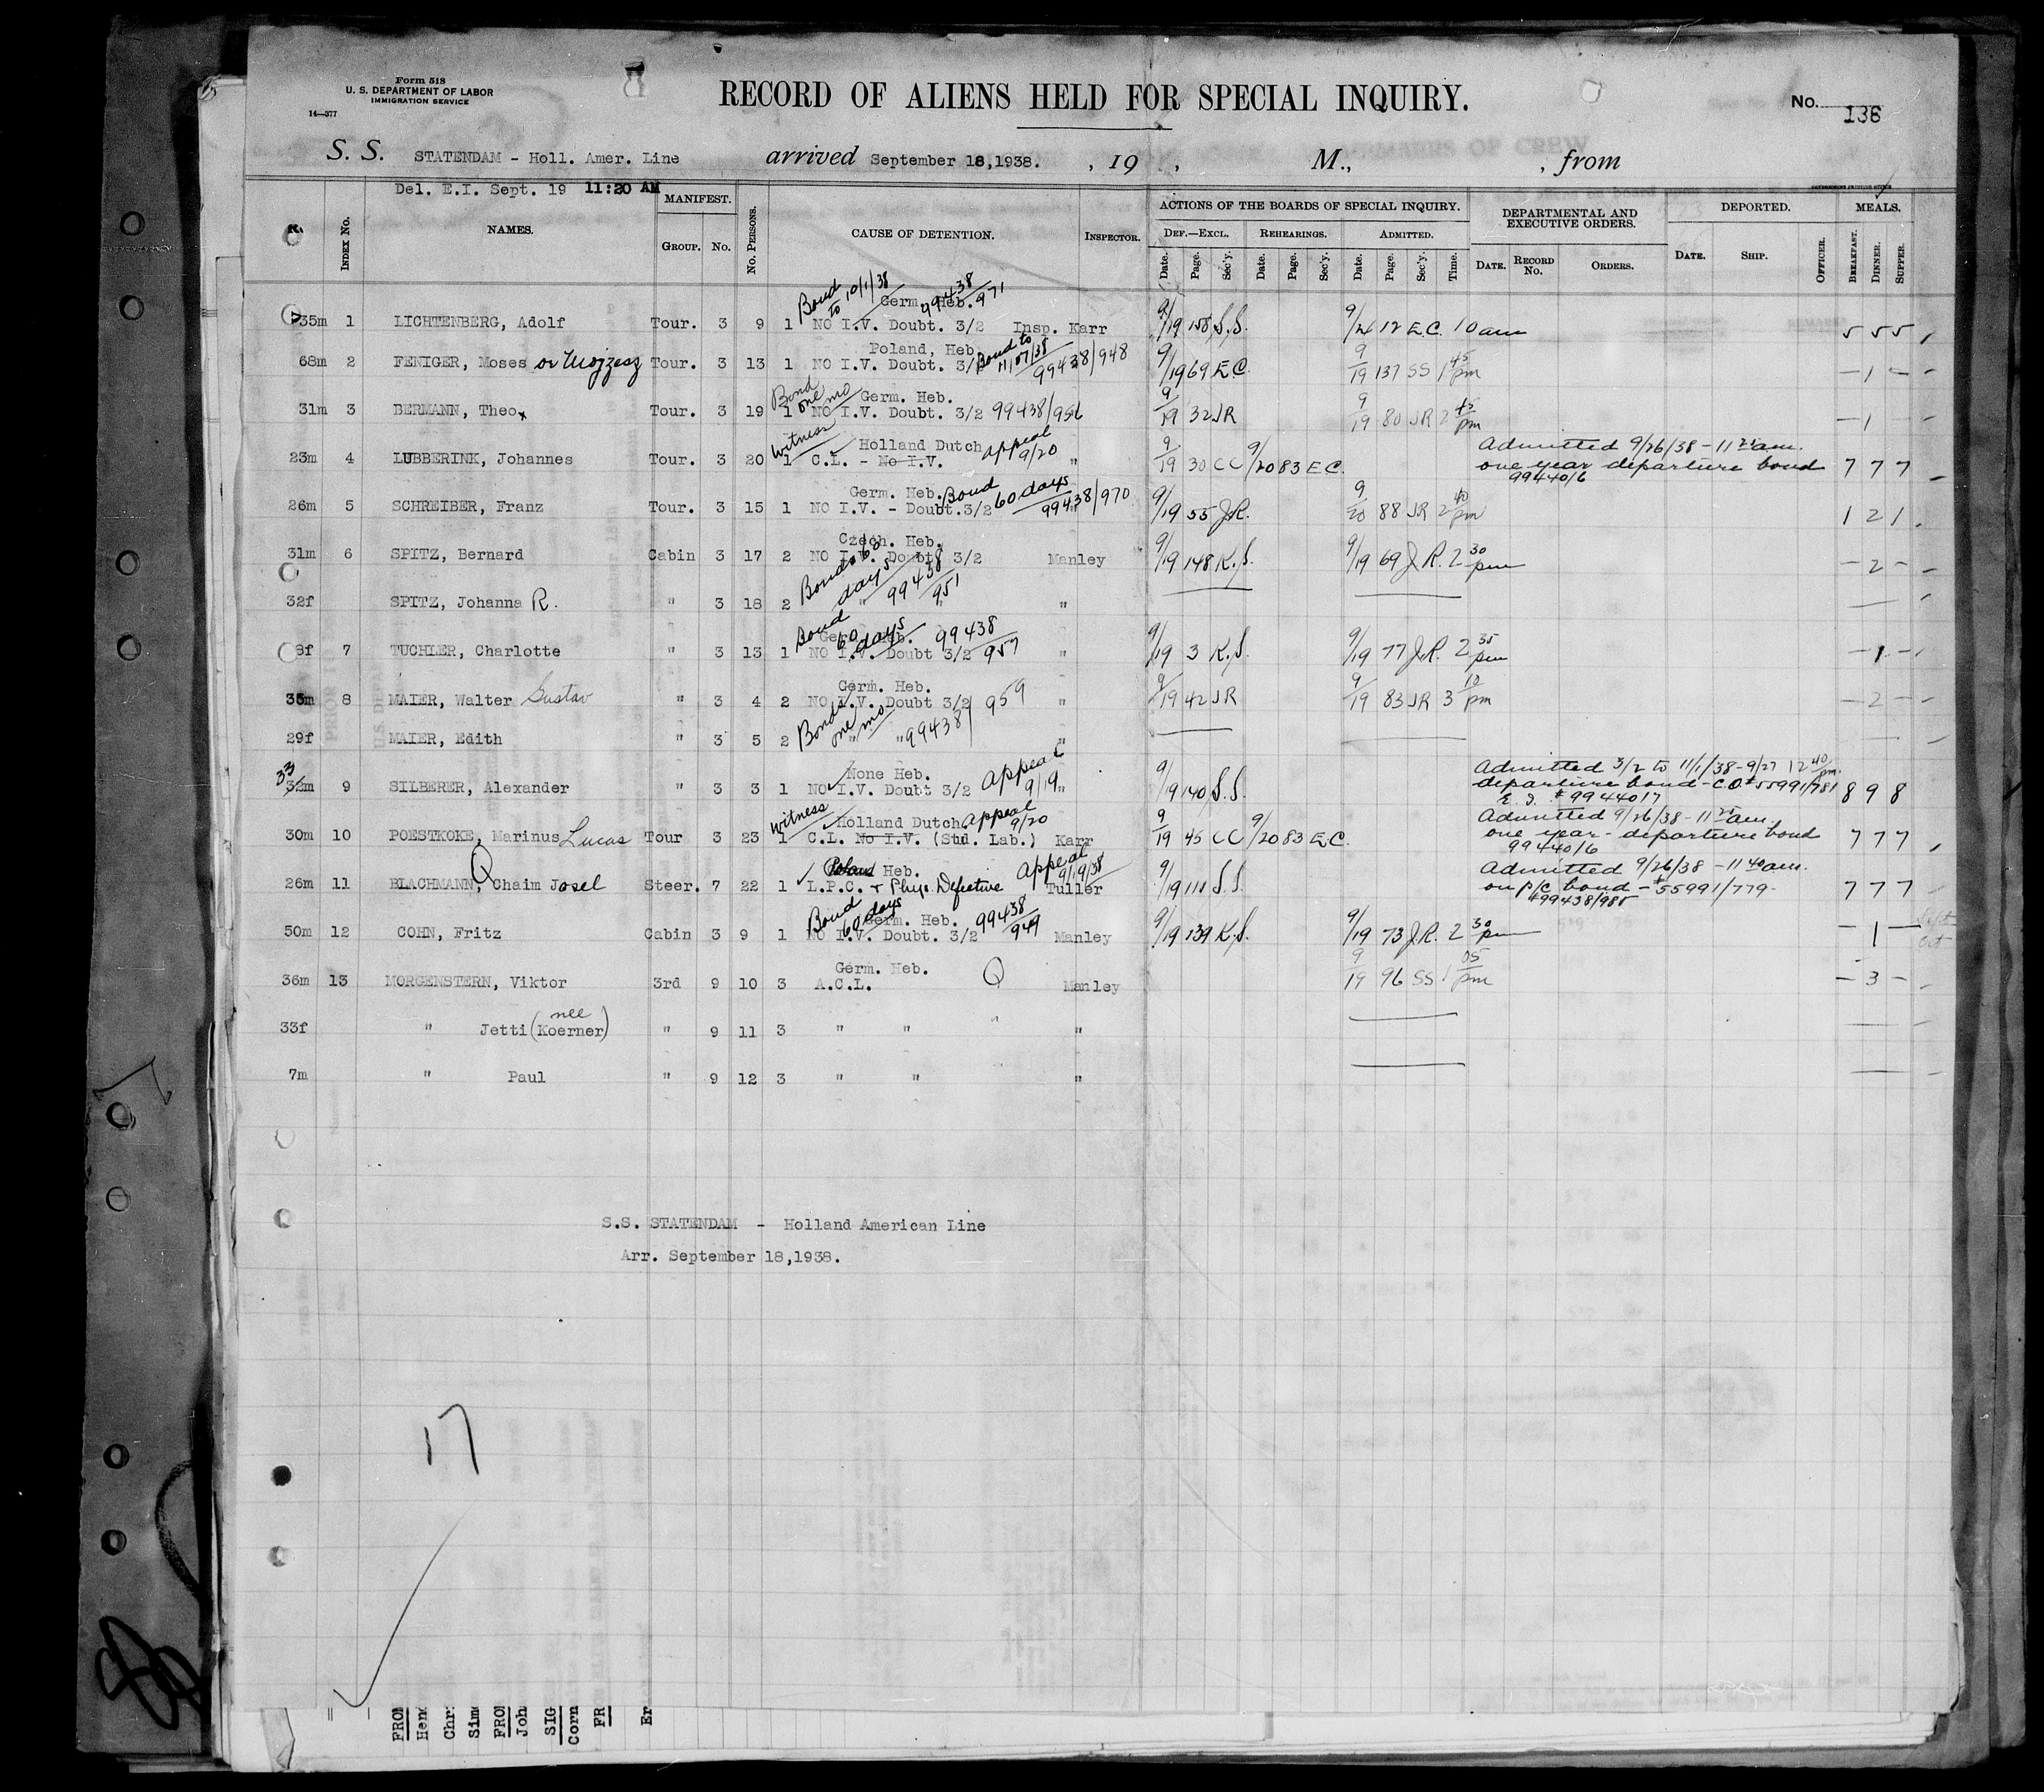 Form 518
U. S. DEPARTMENT OF LABOR
IMMIGRATION SERVICE
14—377
RECORD OF ALIENS HELD FOR SPECIAL INQUIRY.
No. 136
S. S. STATENDAM - Holl. Amer. Line arrived September 18,1938. , 19 , M., , from
Del. E.I. Sept. 19 11:20 AM
GOVERNMENT PRINTING OFFICE
INDEX No. NAMES. MANIFEST. GROUP. No. No. PERSONS. CAUSE OF DETENTION. INSPECTOR.
ACTIONS OF THE BOARDS OF SPECIAL INQUIRY. DEF.—EXCL. REHEARINGS. ADMITTED.
Date. Page. Sec'y. Date. Page. Sec'y. Date. Page. Sec'y. Time.
DEPARTMENTAL AND EXECUTIVE ORDERS. DATE. RECORD No. ORDERS.
DEPORTED. DATE. SHIP. OFFICER.
MEALS. BREAKFAST. DINNER. SUPPER.
Bond to 10/1/38 Germ. Heb. 99438/971
35m 1 LICHTENBERG, Adolf Tour. 3 9 1 NO I.V. Doubt. 3/2 Insp. Karr 9/19 158 S.S. 9/21 12 E.C. 10 am 5 5 5
Poland, Heb. Bond to
68m 2 FENIGER, Moses or Mojzesz Tour. 3 13 1 NO I.V. Doubt. 3/2 99438/948 9/19 69 E.C. 9/19 137 SS 1 45 pm - 1 -
Bond one mo Germ. Heb.
31m 3 BERMANN, Theo Tour. 3 19 1 NO I.V. Doubt. 3/2 99438/956 9/19 32 JR 9/19 80 JR 2 45 pm - 1 -
witness Holland Dutch appeal 9/20
23m 4 LUBBERINK, Johannes Tour. 3 20 1 C.L. - No I.V. " 9/19 30 CC 9/20 83 E.C. Admitted 9/26/38 - 11 25 am. one year departure bond 99440/6 7 7 7
Germ. Heb. Bond 60 days
26m 5 SCHREIBER, Franz Tour. 3 15 1 NO I.V. - Doubt.3/2 99438/970 9/19 55 J.R. 9/20 88 JR 2 40 pm 1 2 1
Czech. Heb.
31m 6 SPITZ, Bernard Cabin 3 17 2 NO I.V. Doubt 3/2 Manley 9/19 148 K.S. 9/19 69 J.R. 2 30 pm - 2 -
Bonds 60 days 99438/951
32f SPITZ, Johanna R. " 3 18 2 " "
Bond 60 days Germ. Heb. 99438/957
8f 7 TUCHLER, Charlotte " 3 13 1 NO I.V. Doubt 3/2 " 9/19 3 K.S. 9/19 77 J.R. 2 35 pm - 1 -
Germ. Heb.
35m 8 MAIER, Walter Gustav " 3 4 2 NO I.V. Doubt 3/2 " 9/19 42 JR 9/19 83 JR 3 10 pm - 2 -
Bonds one mo 99438/959
29f MAIER, Edith " 3 5 2 " " "
None Heb. appeal 9/19
33 32m 9 SILBERER, Alexander " 3 3 1 NO I.V. Doubt 3/2 " 9/19 140 S.S. Admitted 3/2 to 11/1/38 - 9/27 12 40 pm. departure bond - C.O # 55991/781 E.I. # 9944017 8 9 8
witness Holland Dutch appeal 9/20
30m 10 POESTKOKE, Marinus Lucas Tour 3 23 1 C.L. No I.V. (Std. Lab.) Karr 9/19 45 CC 9/20 83 E.C. Admitted 9/26/38 - 11 25 am. one year - departure bond 99440/6 7 7 7
Poland Heb. appeal 9/19/38
26m 11 BLACHMANN, Chaim Josel Steer. 7 22 1 L.P.C. + Phys. Defective Tuller 9/19 111 S.S. Admitted 9/26/38 - 11 40 am. on p/c bond - # 55991/779 - # 99438/985 7 7 7
Bond 60 days Germ. Heb. 99438/949
50m 12 COHN, Fritz Cabin 3 9 1 NO I.V. Doubt. 3/2 Manley 9/19 139 K.S. 9/19 73 J.R. 2 30 pm - 1 -
Germ. Heb. Q
36m 13 MORGENSTERN, Viktor 3rd 9 10 3 A.C.L. Manley 9/19 96 SS 1 05 pm - 3 -
33f " Jetti (nee Koerner) " 9 11 3 " " "
7m " Paul " 9 12 3 " " "
S.S. STATENDAM - Holland American Line
Arr. September 18,1938.
17
FROM
Chr.
Sim
FROM
Joh
SIG
Corn
FR
Er